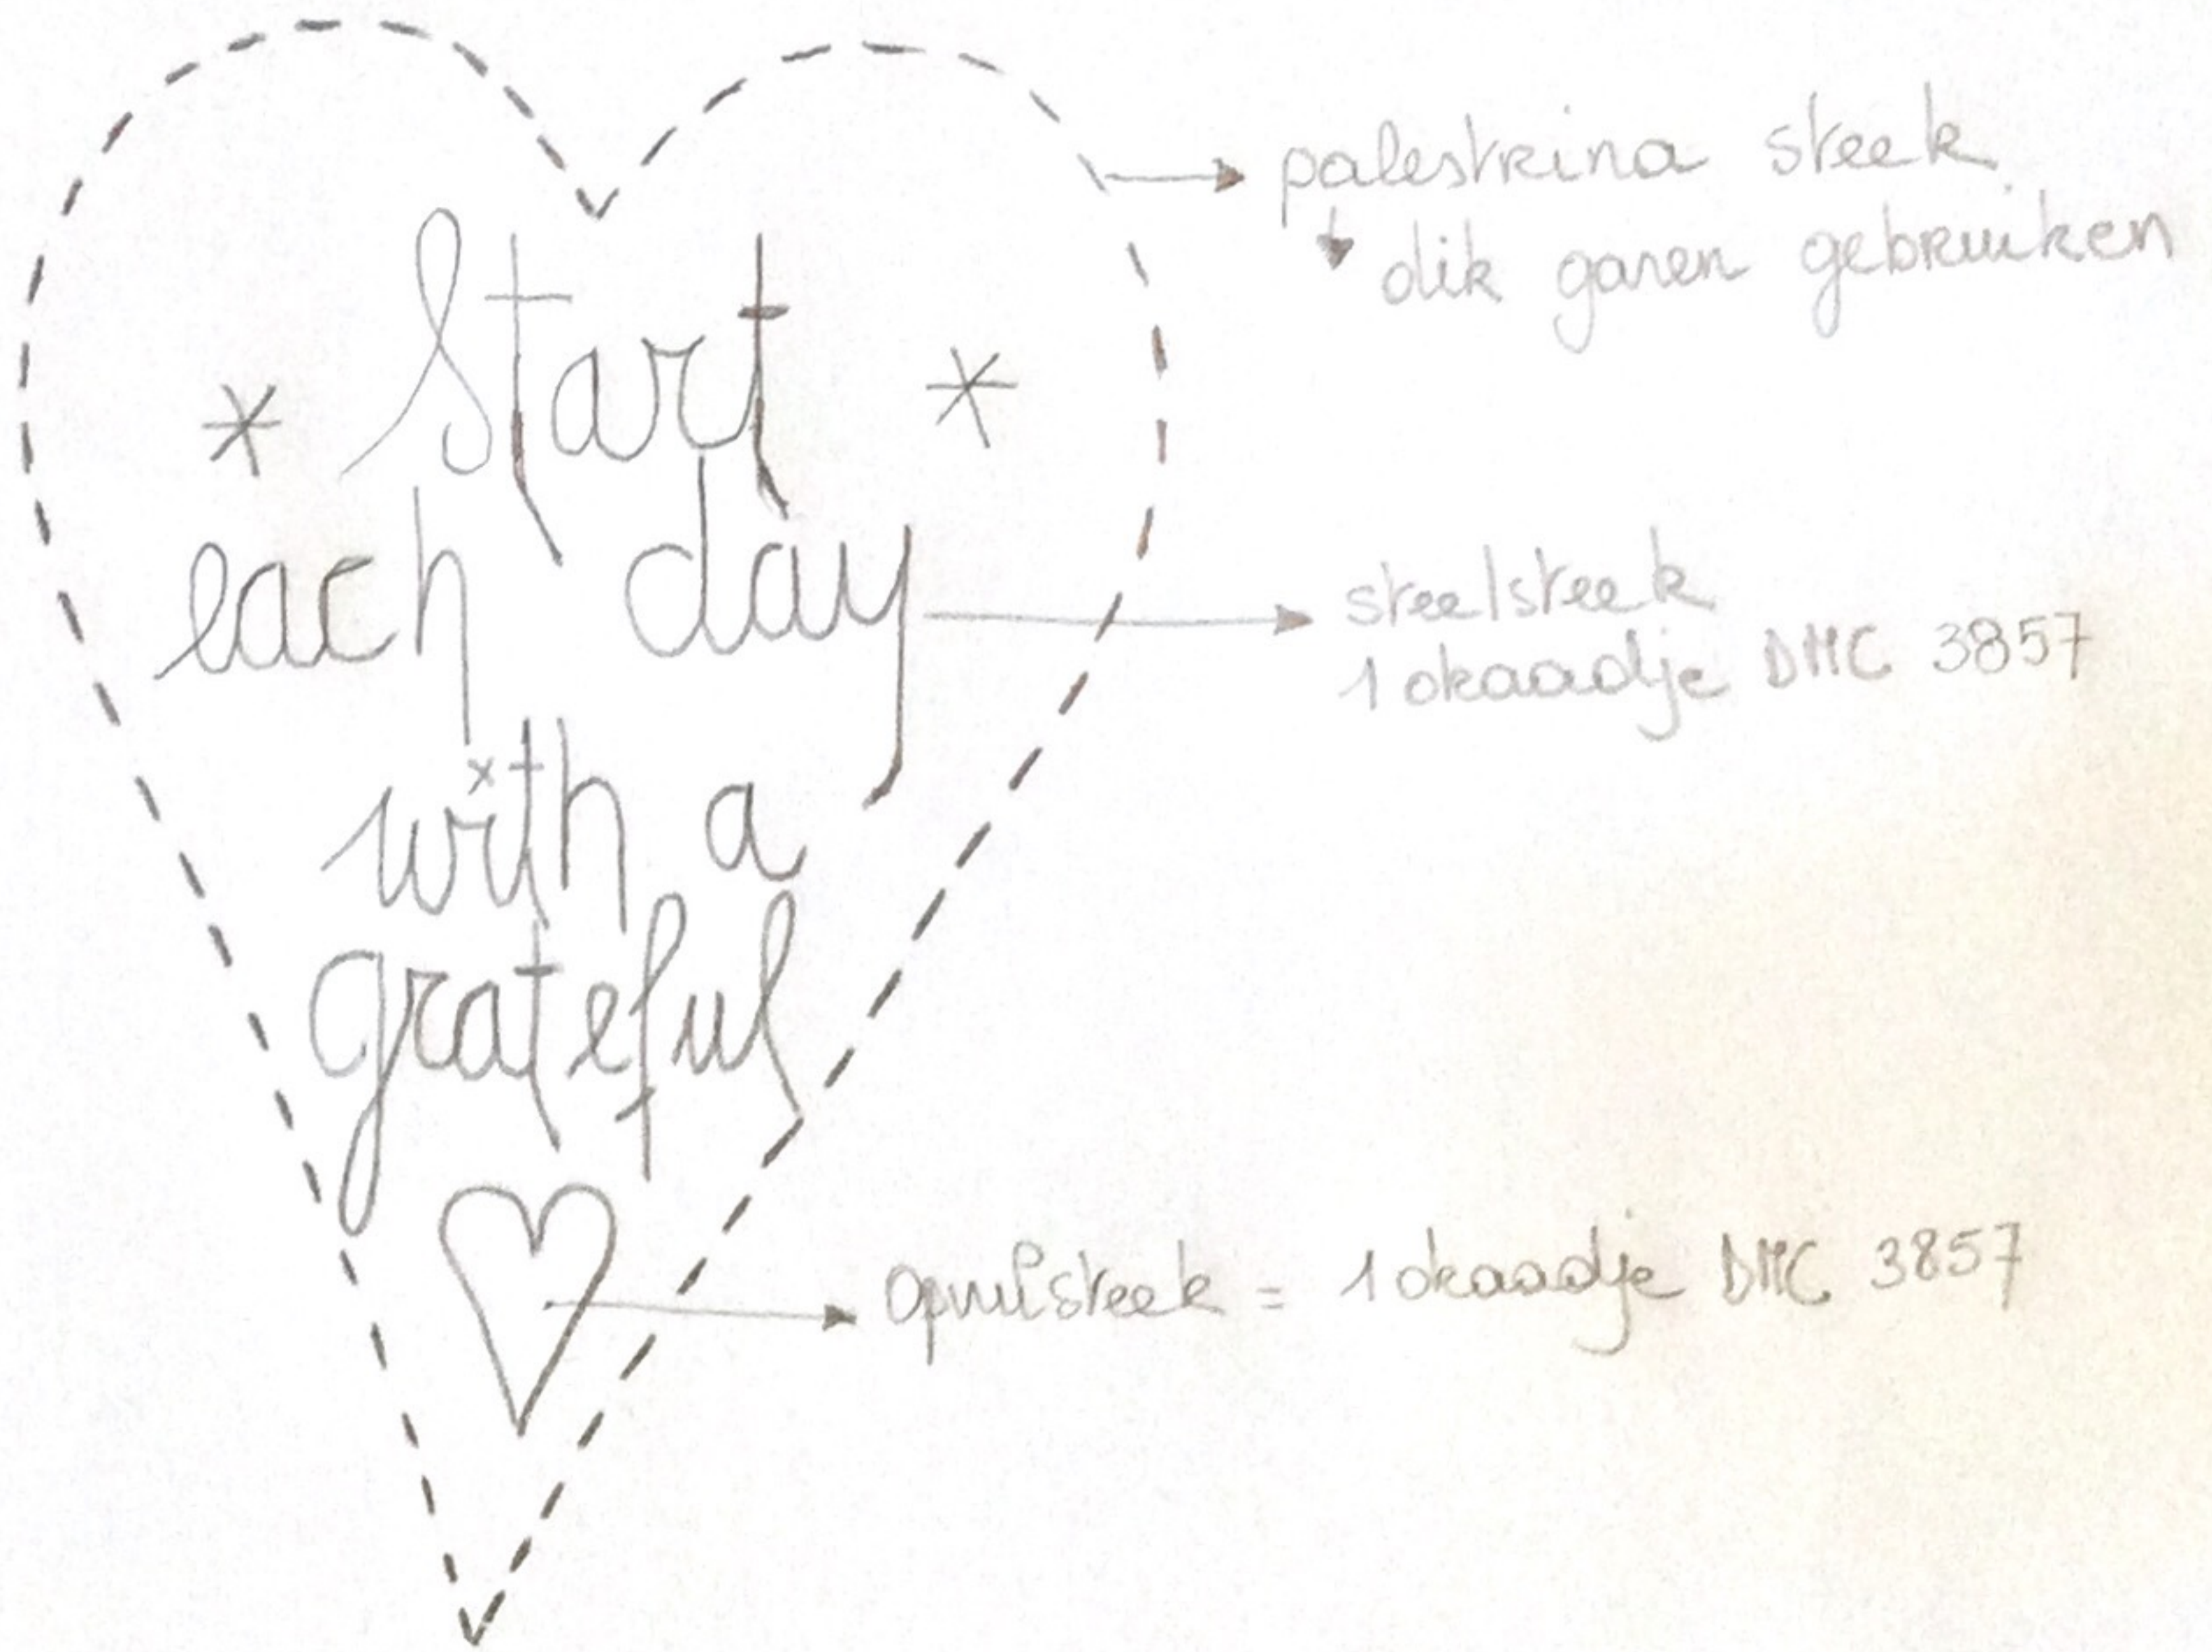 Start
each day
with a
grateful
palestrina steek
dik garen gebruiken
steelsteek
1 draadje DMC 3857
Opvulsteek = 1 draadje DMC 3857